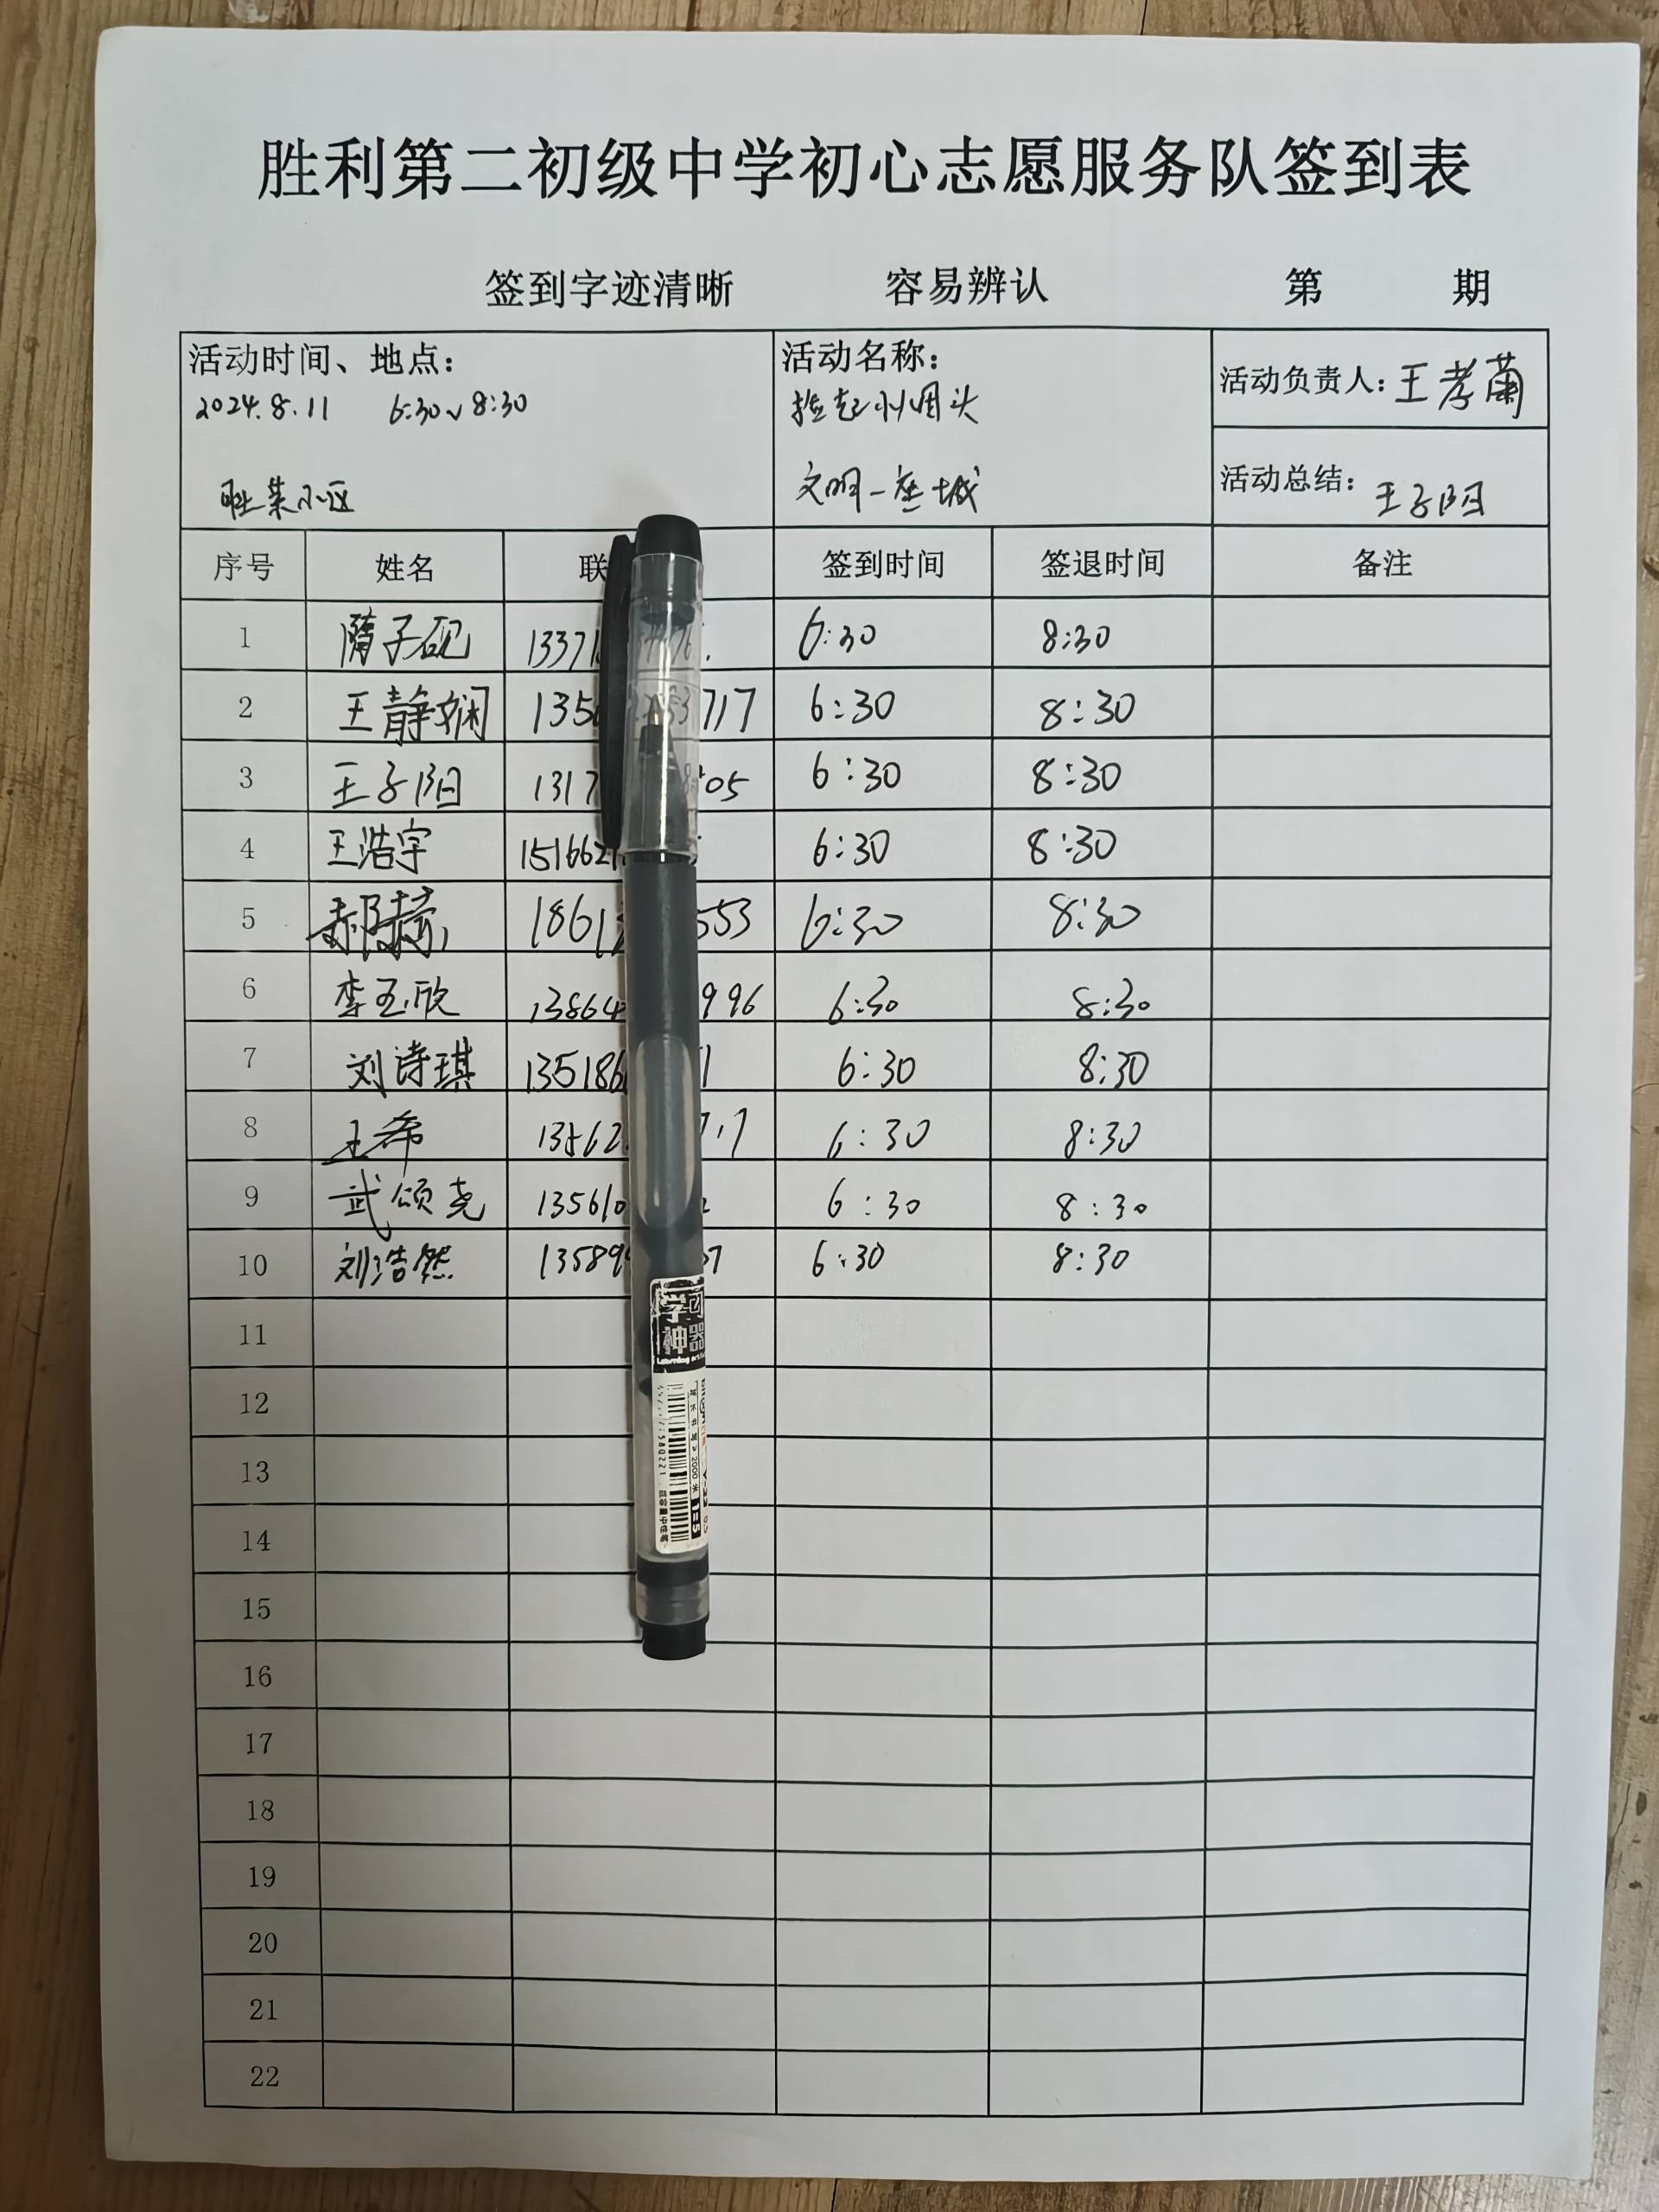 胜利第二初级中学初心志愿服务队签到表
签到字迹清晰 容易辨认 第 期
活动时间、地点： 活动名称： 活动负责人：王孝蘭
2024.8.11 6:30~8:30 捡起小烟头
小区 文明一座城 活动总结：王子阳
序号 姓名 联 签到时间 签退时间 备注
1 隋子砚 1337 6:30 8:30
2 王静娴 135 717 6:30 8:30
3 王子阳 1317 05 6:30 8:30
4 王浩宇 151662 6:30 8:30
5 郝 1861 553 6:30 8:30
6 李玉欣 13864 996 6:30 8:30
7 刘诗琪 135186 1 6:30 8:30
8 王希 13562 6:30 8:30
9 武颂尧 13561 6:30 8:30
10 刘浩然 13589 6:30 8:30
11
12
13
14
15
16
17
18
19
20
21
22
学习
神器